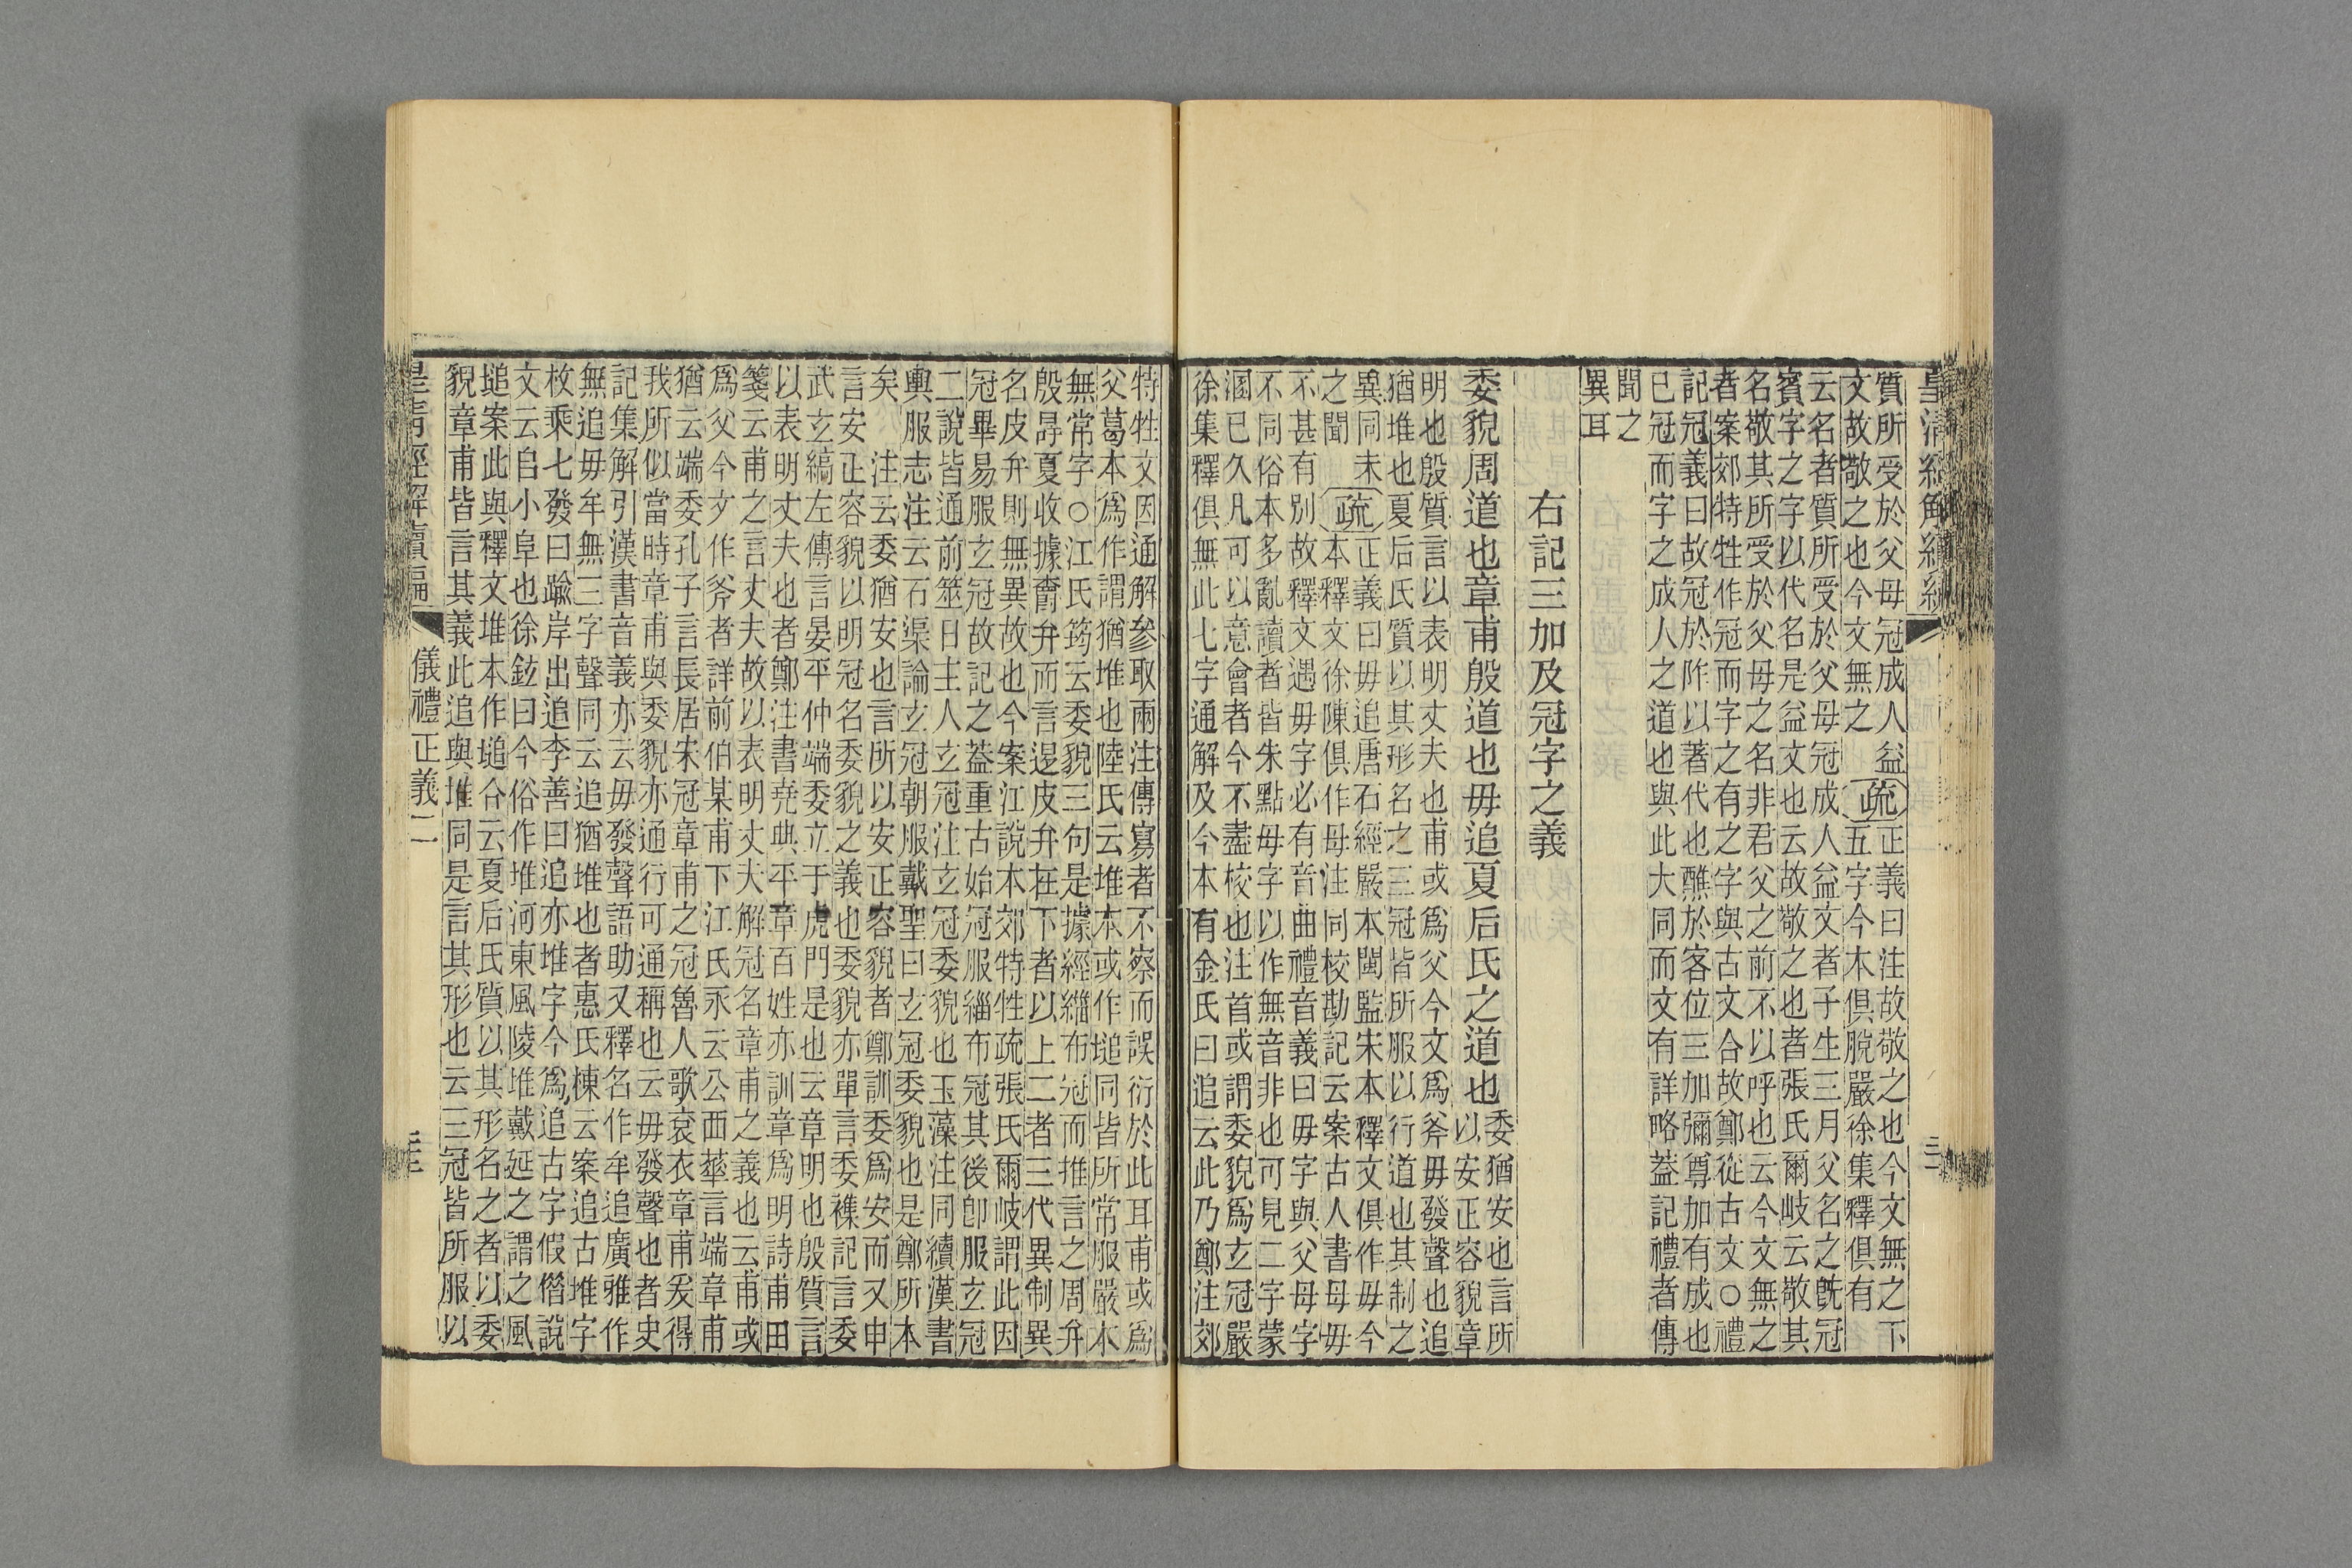 皇清經解續編
質所受於父母冠成人益
文故敬之也今文無之
疏
正義曰注故敬之也今文無之下
五字今本俱脫嚴徐集釋俱有
云名者質所受於父母冠成人益文者子生三月父名之旣冠
賓字之字以代名是益文也云故敬之也者張氏爾岐云敬其
名敬其所受於父母之名非君父之前不以呼也云今文無之
者案郊特牲作冠而字之有之字與古文合故鄭從古文○禮
記冠義曰故冠於阼以著代也醮於客位三加彌尊加有成也
已冠而字之成人之道也與此大同而文有詳略葢記禮者傳
聞之
異耳
右記三加及冠字之義
委貌周道也章甫殷道也毋追夏后氏之道也
委猶安也言所
以安正容貌章
明也殷質言以表明丈夫也甫或爲父今文爲斧毋發聲也追
猶堆也夏后氏質以其形名之三冠皆所服以行道也其制之
異同未
之聞
疏
正義曰毋追唐石經嚴本閩監宋本釋文俱作毋今
本釋文徐陳俱作母注同校勘記云案古人書母毋
不甚有別故釋文遇毋字必有音曲禮音義曰毋字與父母字
不同俗本多亂讀者皆朱點毋字以作無音非也可見二字蒙
溷已久凡可以意會者今不盡校也注首或謂委貌爲玄冠嚴
徐集釋俱無此七字通解及今本有金氏曰追云此乃鄭注郊
特牲文因通解參取兩注傳寫者不察而誤衍於此耳甫或爲
父葛本爲作謂猶堆也陸氏云堆本或作塠同皆所常服嚴本
無常字○江氏筠云委貌三句是據經緇布冠而推言之周弁
殷冔夏收據爵弁而言逞皮弁在下者以上二者三代異制異
名皮弁則無異故也今案江說本郊特牲疏張氏爾岐謂此因
冠畢易服玄冠故記之葢重古始冠冠服緇布冠其後卽服玄冠
二說皆通前筮日主人玄冠注玄冠委貌也玉藻注同續漢書
輿服志注云石渠論玄冠朝服戴聖曰玄冠委貌也是鄭所本
矣　注云委猶安也言所以安正容貌者鄭訓委爲安而又申
言安正容貌以明冠名委貌之義也委貌亦單言委襍記言委
武玄縞左傳言晏平仲端委立于虎門是也云章明也殷質言
以表明丈夫也者鄭注書堯典平章百姓亦訓章爲明詩甫田
箋云甫之言丈夫故以表明丈夫解冠名章甫之義也云甫或
爲父今文作斧者詳前伯某甫下江氏永云公西華言端章甫
猶云端委孔子言長居宋冠章甫之冠魯人歌袞衣章甫爰得
我所似當時章甫與委貌亦通行可通稱也云毋發聲也者史
記集解引漢書音義亦云毋發聲語助又釋名作牟追廣雅作
無追毋牟無三字聲同云追猶堆也者惠氏棟云案追古堆字
枚乘七發曰踰岸出追李善曰追亦堆字今爲追古字假僭說
文云𠂤小阜也徐鉉曰今俗作堆河東風陵堆戴延之謂之風
塠案此與釋文堆本作塠合云夏后氏質以其形名之者以委
貌章甫皆言其義此追與堆同是言其形也云三冠皆所服以
皇清經解續編　儀禮正義二